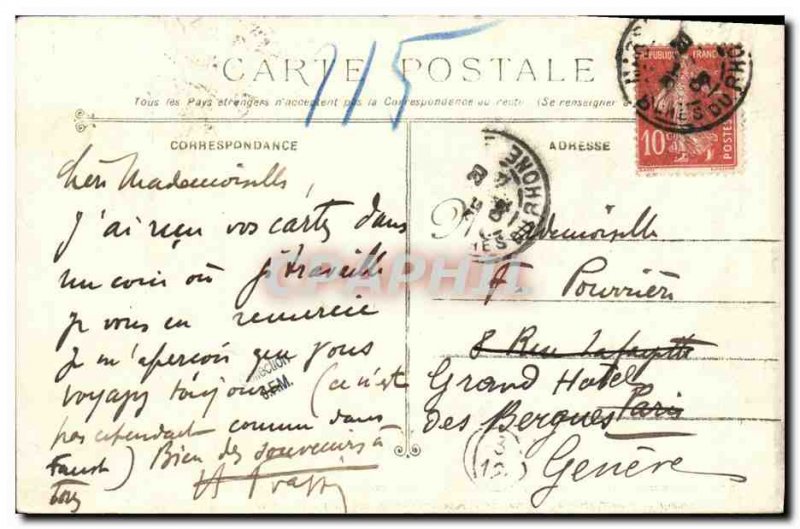 115
CARTE POSTALE
Tous les Pays étrangers n'acceptent pas la Correspondance au recto (Se renseigner à
CORRESPONDANCE
Chère Mademoiselle,
J'ai reçu vos cartes dans
un coin où je travaille
Je vous en remercie
Je m'aperçois que vous
voyagez toujours (ce n'est
pas cependant comme dans
Faust) Bien des souvenirs à
tous
COLLECTION
J.F.M.
ADRESSE
REPUBLIQUE FRANC
10c
POSTES
BCHES DU RHONE
RHONE
Mademoiselle
A Pourrière
8 Rue Lafayette
Paris
Grand Hotel
des Bergues
Genève
CPAPHIL